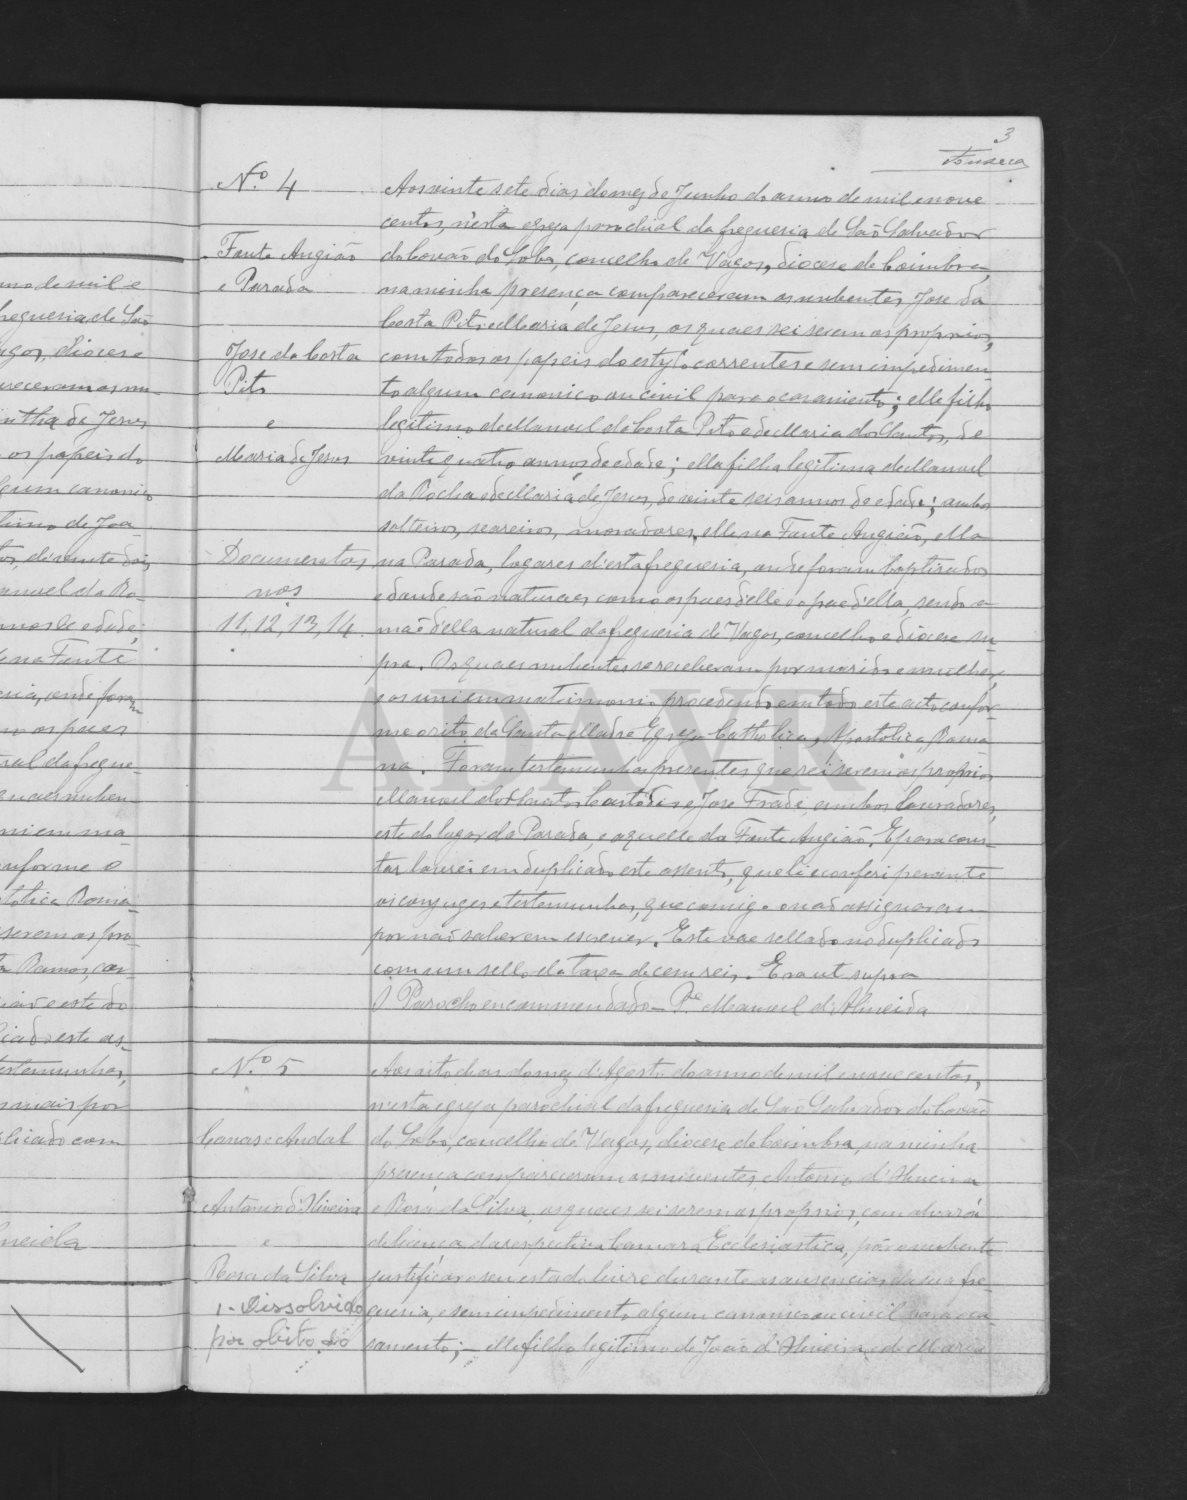 3
Fonseca
Nº 4
Fonte Angião
e Parada
Jose da Costa
Pito
e
Maria de Jesus
Documentos
nos
11, 12, 13, 14.
Aos vinte sete dias do mez de Junho do anno de mil e nove
centos, n'esta egreja parochial da freguesia de São Salvador
do Covão do Lobo, concelho de Vagos, diocese de Coimbra,
na minha presença compareceram os nubentes Jose da
Costa Pito e Maria de Jesus, os quaes sei serem os proprios,
com todos os papeis do estylo correntes e sem impedimen-
to algum canonico ou civil para o casamento; elle filho
legitimo de Manuel da Costa Pito e de Maria dos Santos, de
vinte quatro annos de edade; ella filha legitima de Manuel
da Rocha e de Maria de Jesus, de vinte seis annos de edade; ambos
solteiros, seareiros, moradores, elle na Fonte Angião, ella
na Parada, logares d'esta freguesia, onde foram baptisados
e d'onde são naturaes como os paes d'elle e o pae d'ella, sendo a
mãe d'ella natural da freguesia de Vagos, concelho e diocese su-
pra. Os quaes nubentes se receberam por marido e mulher,
e os uni em matrimonio procedendo em todo este acto confor-
me o rito da Santa Madre Egreja Catholica, Apostolica, Roma-
na. Foram testemunhas presentes que sei serem os proprios
Manuel dos Santos Custodio e Jose Frade, ambos lavradores,
este do logar da Parada, e aquelle da Fonte Angião. E para cons-
tar lavrei em duplicado este assento, que li e conferi perante
os conjuges e testemunhas, que comigo não assignaram
por não saberem escrever. Este vae sellado no duplicado
com um sello da taxa de cem reis. Era ut supra
O Parocho encommendado – Pe. Manuel d'Almeida
Nº 5
Canas e Andal
Antonio d'Oliveira
e
Rosa da Silva
1 - Dissolvido
por obito do
Aos oito dias do mez d'Agosto do anno de mil e nove centos,
n'esta egreja parochial da freguesia de São Salvador do Covão
do Lobo, concelho de Vagos, diocese de Coimbra, na minha
presença compareceram os nubentes, Antonio d'Oliveira
e Rosa da Silva, os quaes sei serem os proprios, com alvará
de licença da respectiva Camara Ecclesiastica, pª o nubente
justificar o seu estado livre durante as ausencias da sua fre-
guesia, e sem impedimento algum canonico ou civil para o ca-
samento; – elle filho legitimo de João d'Oliveira e de Maria